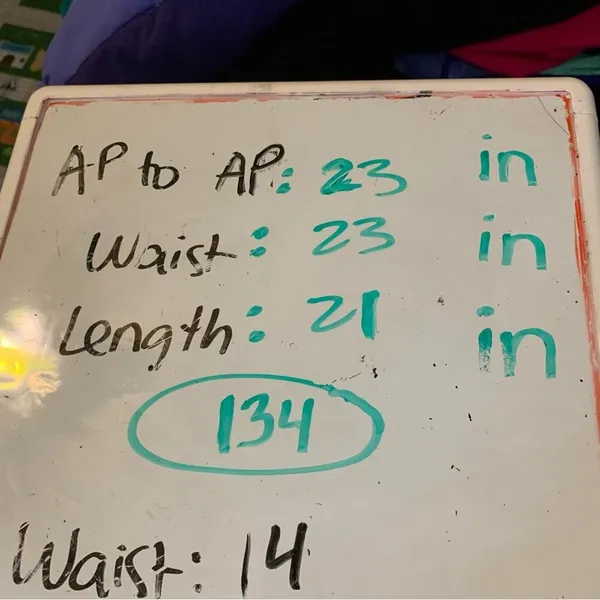 AP to AP: 23 in
Waist: 23 in
Length: 21 in
134
Waist: 14